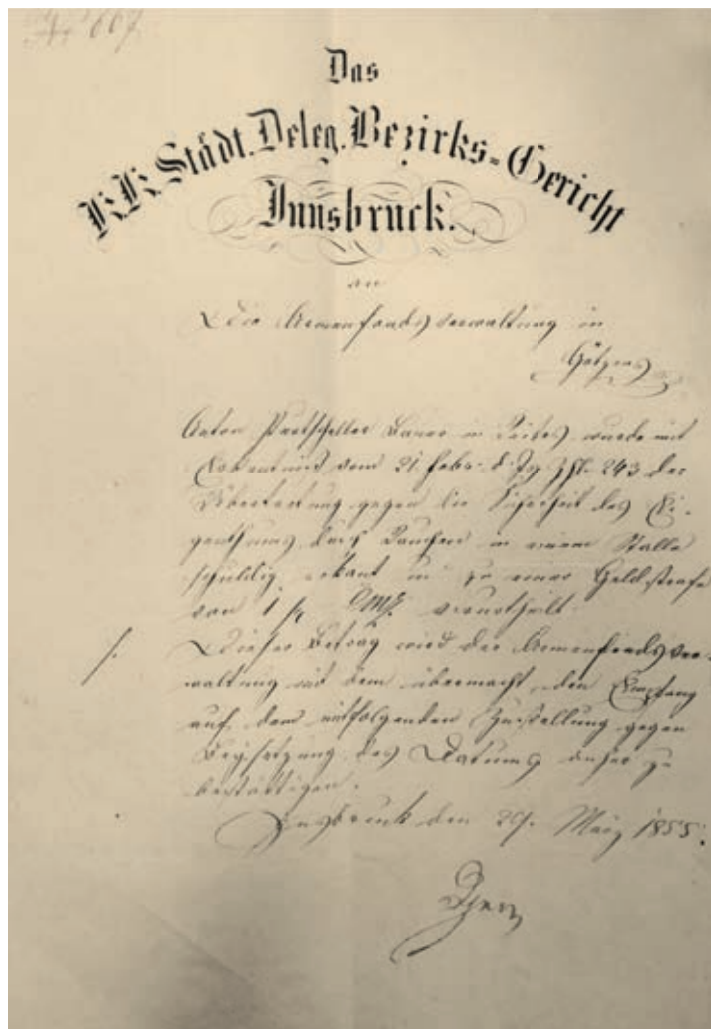 667
Das
KK Städt. Deleg. Bezirks=Gericht
Innsbruck.
an
Die Armenfonds Verwaltung in
Götzens
Anton Partscheller Bauer in wurde mit
Erkentniß vom 21. Febr. d. Js Zhl. 243 der
Übertretung gegen die Sicherheit des Ei-
genthums durch Rauchen in einem Stalle
schuldig erkant u zu einer Geldstrafe
von 1 fr CMz verurtheilt.
/. Dieser Betrag wird der Armenfondsver-
waltung mit dem übermacht, den Empfang
auf dem mitfolgenden Zustellung gegen
Beisetzung des Datums anher zu
bestättigen.
Innsbruck den 29. März 1855.